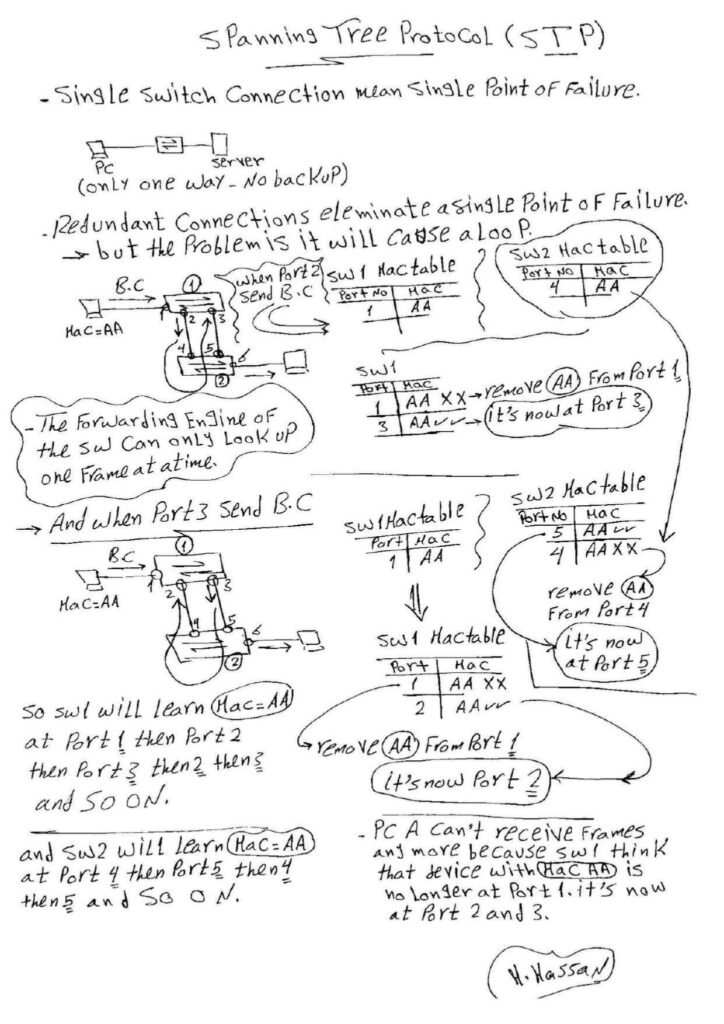 Spanning Tree Protocol (STP)
- Single Switch Connection mean Single Point of Failure.
PC
Server
(only one way - No backup)
- Redundant Connections eleminate a single Point of Failure.
→ but the Problem is it will cause a loop.
B.C
MAC=AA
1
2
3
4
5
6
1
2
When Port 2
Send B.C
SW1 Mac table
Port No | Mac
1 | AA
SW2 Mac table
Port No | Mac
4 | AA
SW1
Port | Mac
1 | AA XX → remove AA From Port 1
3 | AA ✓✓ → it's now at Port 3
- The Forwarding Engine of
the SW Can only Look up
one Frame at a time.
→ And when Port 3 Send B.C
B.C
MAC=AA
1
2
3
4
5
6
1
2
SW1 Mac table
Port | Mac
1 | AA
SW2 Mac table
Port No | Mac
5 | AA ✓✓
4 | AA XX
remove AA
From Port 4
it's now
at Port 5
SW1 Mac table
Port | Mac
1 | AA XX
2 | AA ✓✓
remove AA From Port 1
it's now Port 2
So SW1 will learn Mac=AA
at Port 1 then Port 2
then Port 3 then 2 then 3
and so on.
and SW2 will learn Mac=AA
at Port 4 then Port 5 then 4
then 5 and so on.
- PC A Can't receive Frames
any more because SW1 think
that device with Mac AA is
no longer at Port 1. it's now
at Port 2 and 3.
H.Hassan